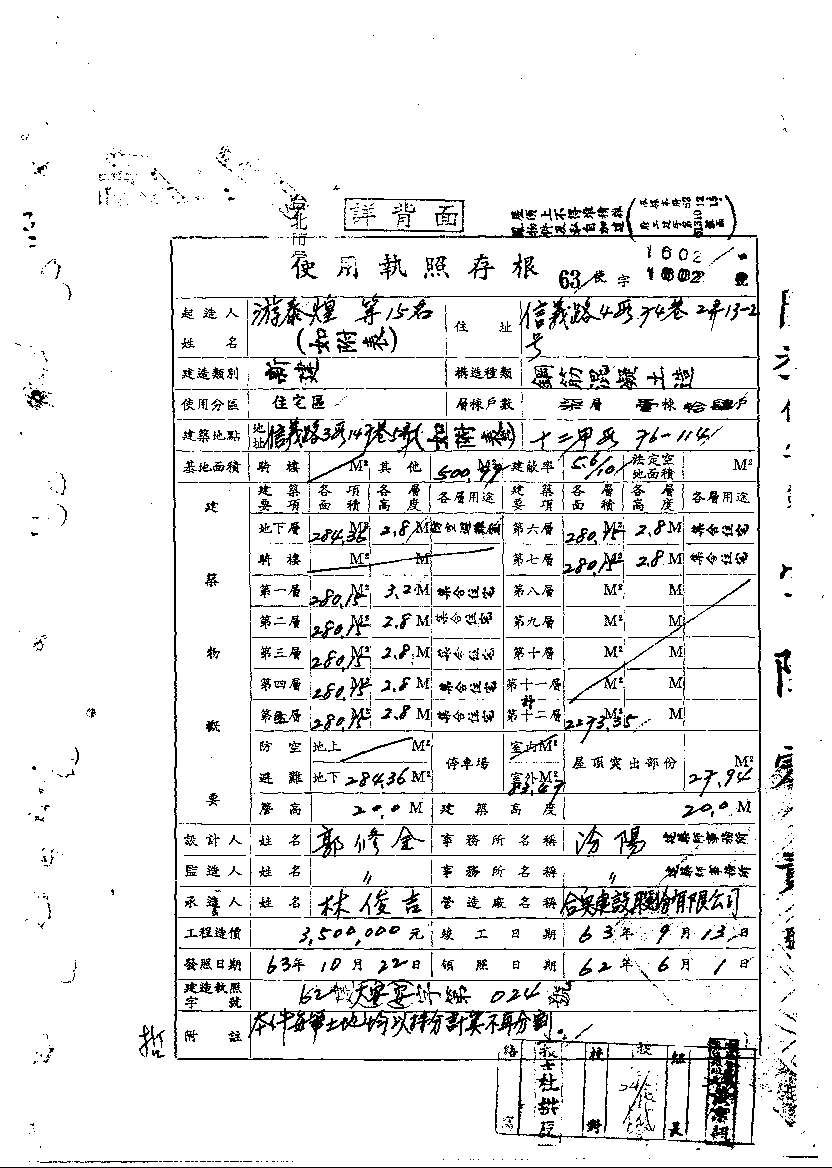 詳背面
使用執照存根
63 使字 1602 號
起造人姓名 游泰煌 等15名 (如附表) 住址 信義路4段74巷2弄13-2號
建造類別 新建 構造種類 鋼筋混凝土造
使用分區 住宅區 層棟戶數 柒層 壹棟 拾肆戶
建築地點 地址 信義路3段147巷5弄(如附表) 十二甲段 76-114
基地面積 騎樓 M² 其他 500.77 M² 建蔽率 5.6/10 法定空地面積 M²
建築物概要
建築要項 各項面積 各層高度 各層用途 建築要項 各層面積 各層高度 各層用途
地下層 284.36 M² 2.8 M 第六層 280.75 M² 2.8 M 集合住宅
騎樓 M² M 第七層 280.75 M² 2.8 M 集合住宅
第一層 280.75 M² 3.2 M 集合住宅 第八層 M² M
第二層 280.75 M² 2.8 M 集合住宅 第九層 M² M
第三層 280.75 M² 2.8 M 集合住宅 第十層 M² M
第四層 280.75 M² 2.8 M 集合住宅 第十一層 M² M
第五層 280.75 M² 2.8 M 集合住宅 第十二層 2273.35 M² M
防空避難 地上 M² 停車場 室內 M² 屋頂突出部份 M²
地下 284.36 M² 室外 M² 83.47 27.94
簷高 20.0 M 建築高度 20.0 M
設計人 姓名 郭修全 事務所名稱 汾陽 建築師事務所
監造人 姓名 〃 事務所名稱 〃 建築師事務所
承造人 姓名 林俊吉 營造廠名稱 股份有限公司
工程造價 3,500,000元 竣工日期 63年9月13日
發照日期 63年10月22日 領照日期 62年6月1日
建造執照字號 62 第 024 號
附註 本件每筆土地均以持分計算不再分割。
校對
組長